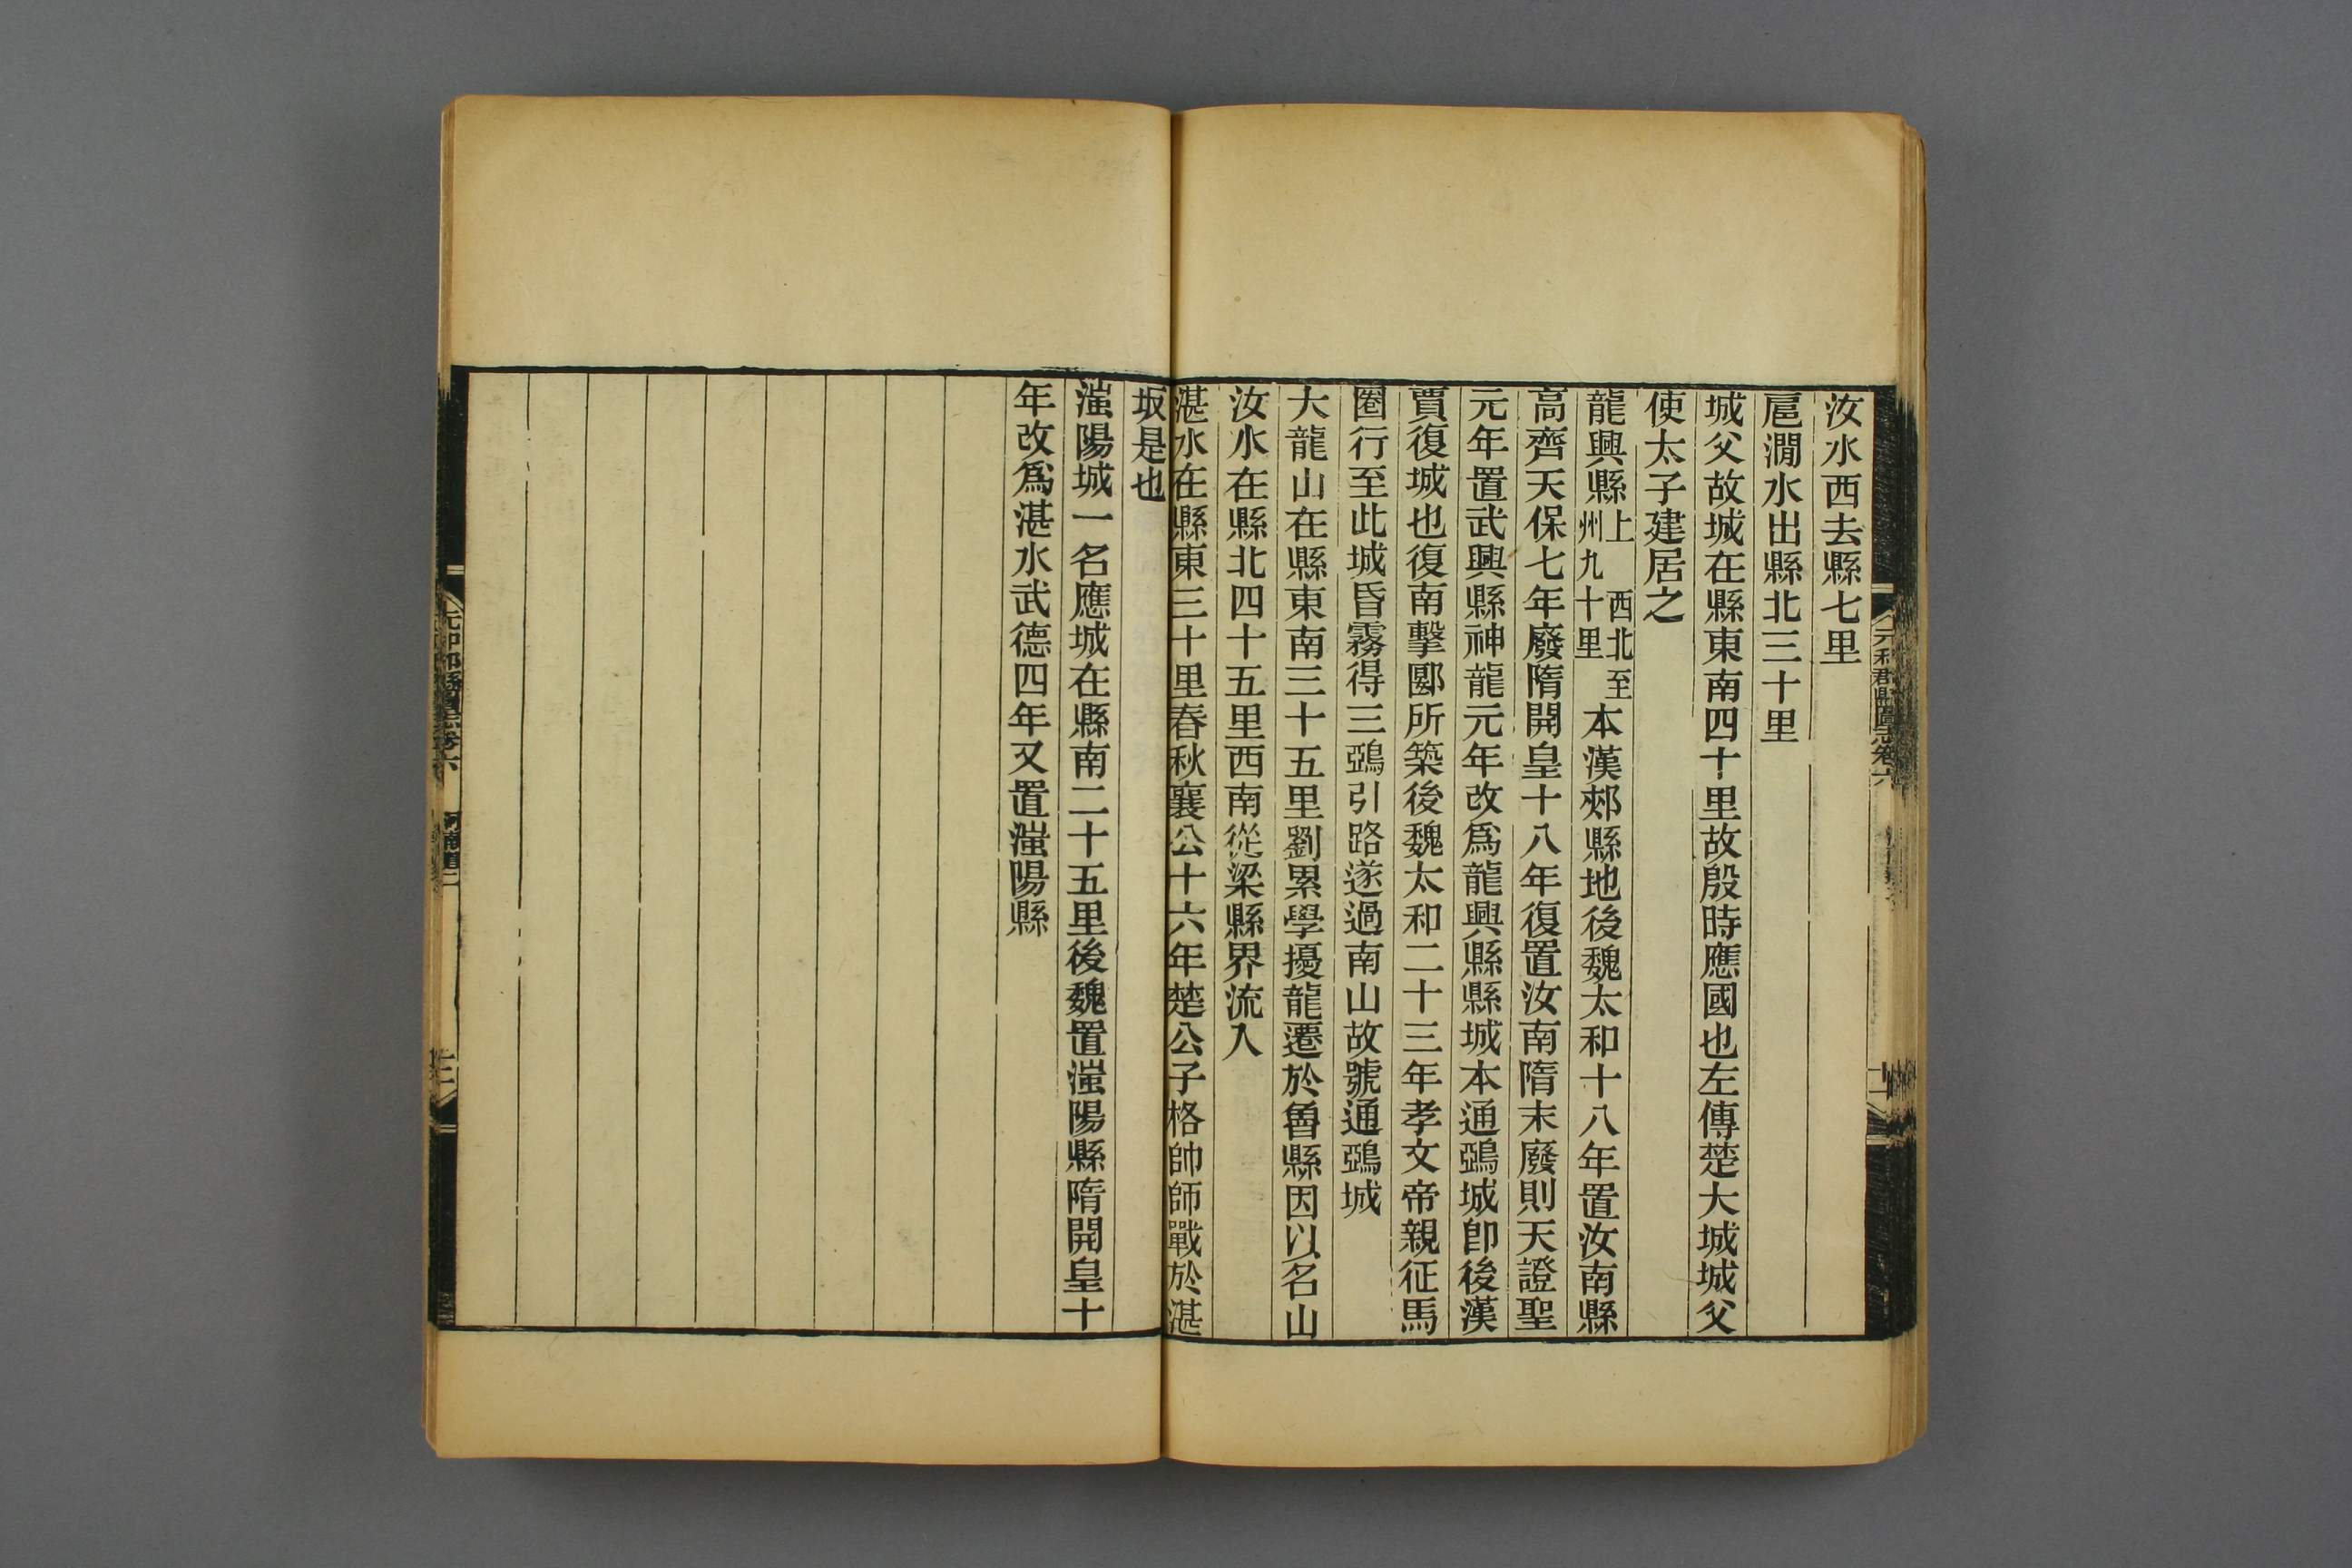 汝水西去縣七里
扈澗水出縣北三十里
城父故城在縣東南四十里故殷時應國也左傳楚大城城父
使太子建居之
龍興縣上 西北至州九十里本漢郟縣地後魏太和十八年置汝南縣
高齊天保七年廢隋開皇十八年復置汝南隋末廢則天證聖
元年置武興縣神龍元年改爲龍興縣縣城本通鵶城卽後漢
賈復城也復南擊郾所築後魏太和二十三年孝文帝親征馬
圈行至此城昏霧得三鵶引路遂過南山故號通鵶城
大龍山在縣東南三十五里劉累學擾龍遷於魯縣因以名山
汝水在縣北四十五里西南從梁縣界流入
湛水在縣東三十里春秋襄公十六年楚公子格帥師戰於湛
坂是也
滍陽城一名應城在縣南二十五里後魏置滍陽縣隋開皇十
年改爲湛水武德四年又置滍陽縣
元和郡縣圖志卷六